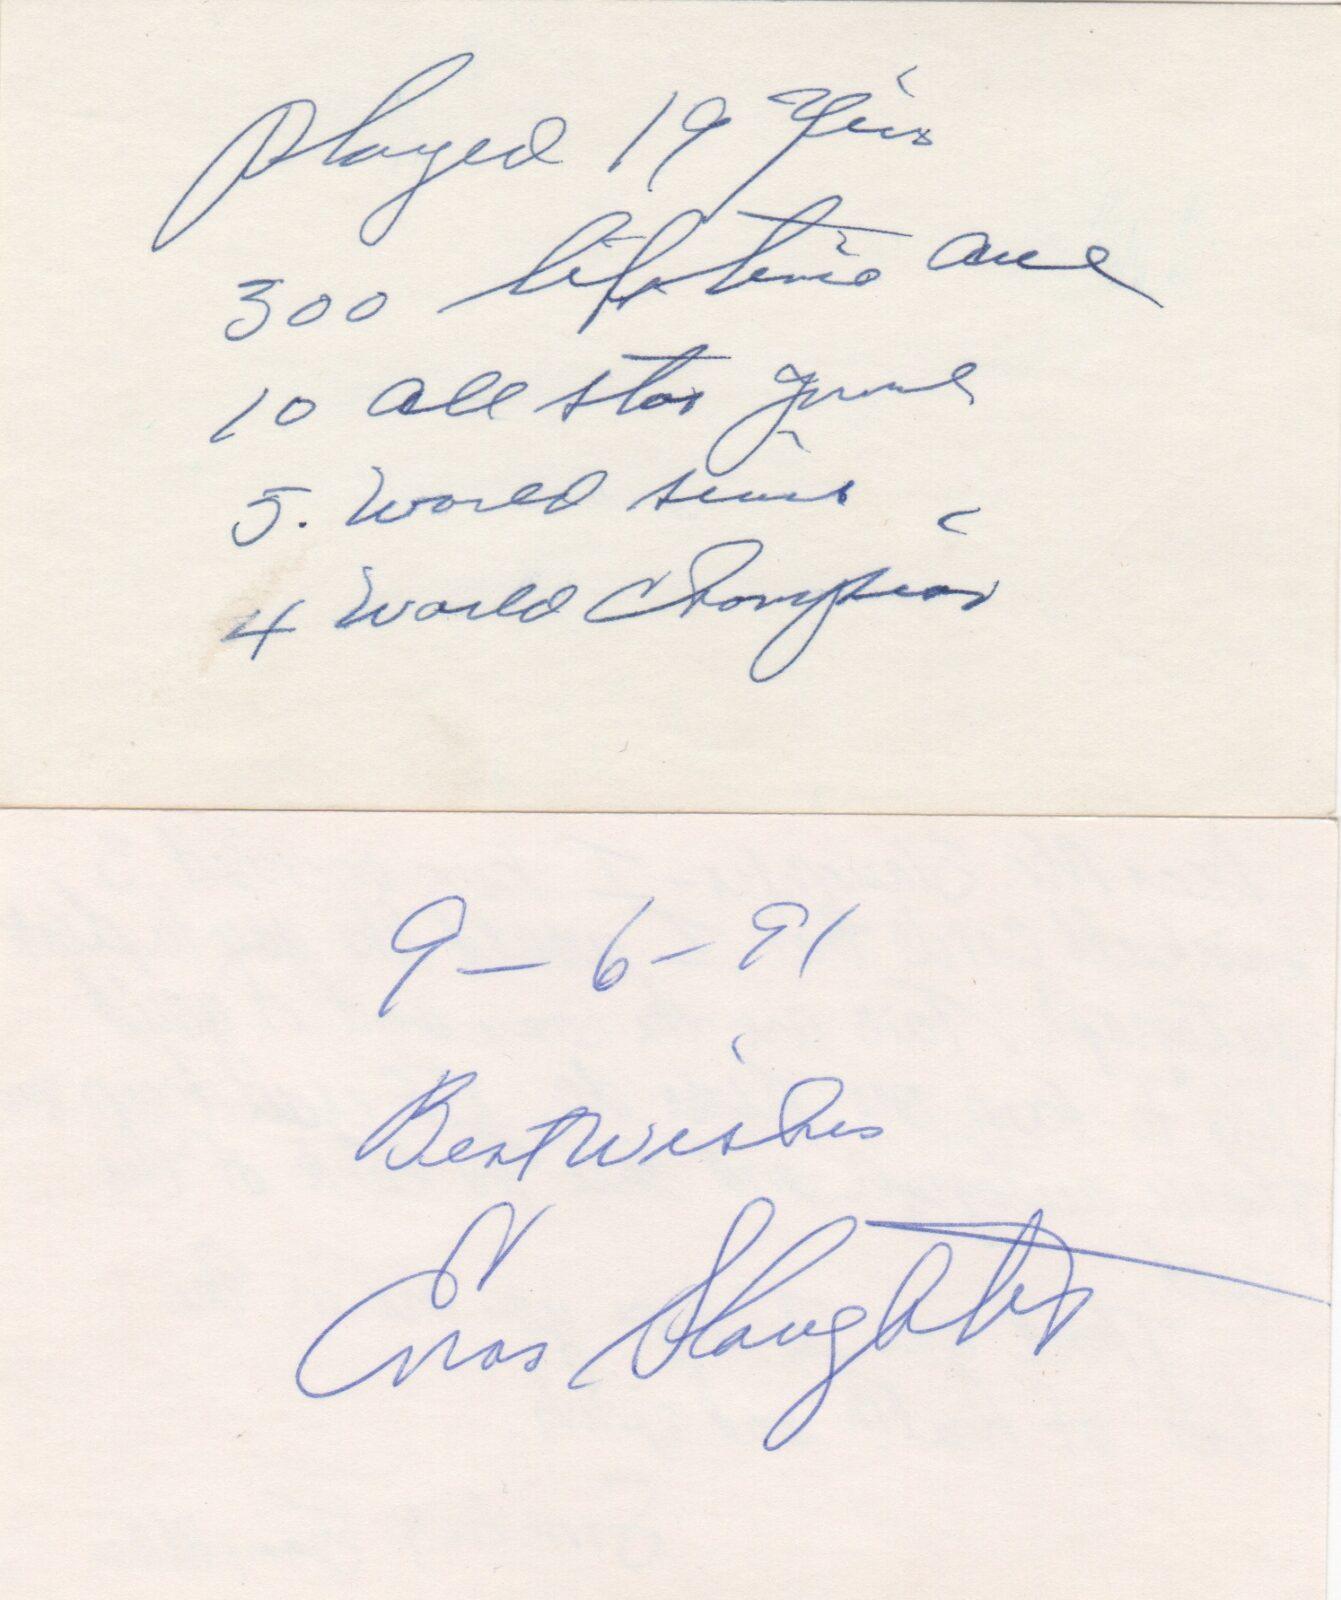 played 19 yrs
300 lifetime ave
10 all star game
5. World series
4 World Champion
9-6-91
Best wishes
Enos Slaughter